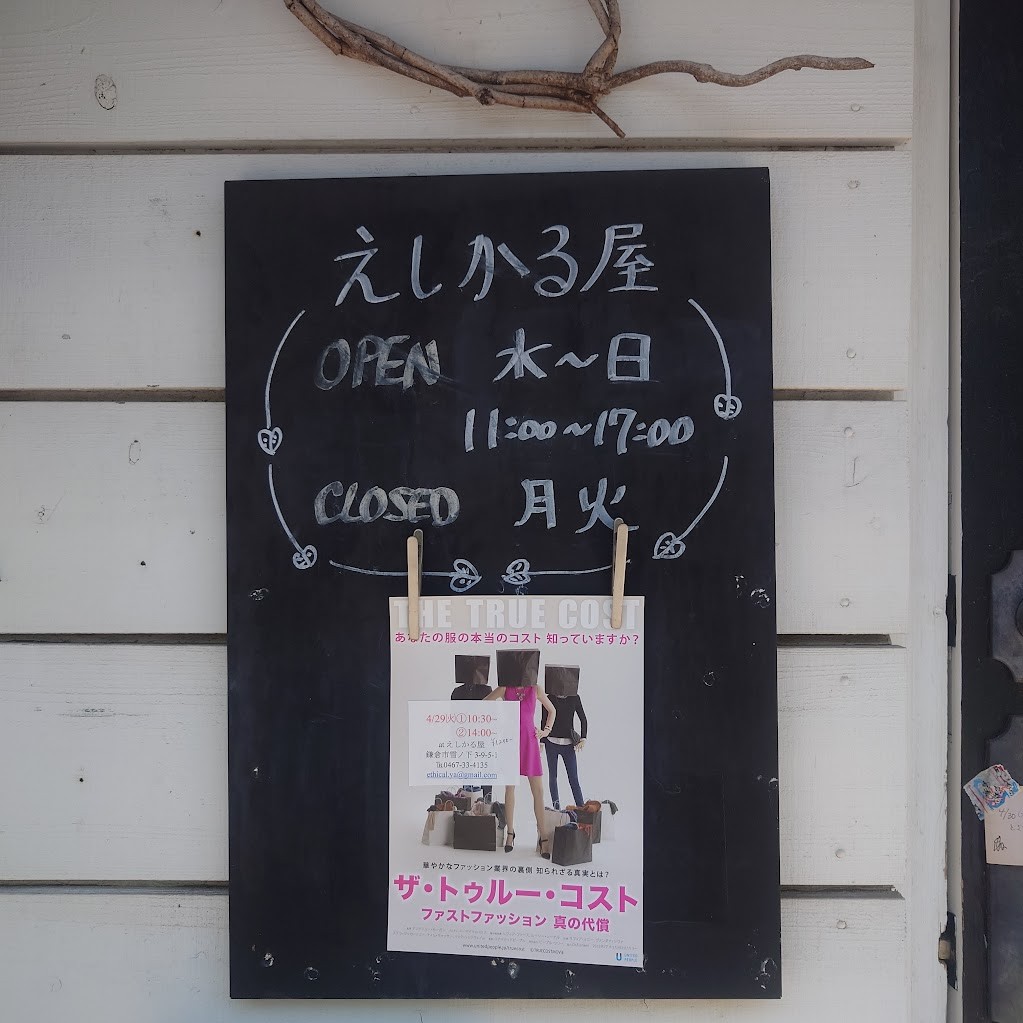 えしかる屋
OPEN 水〜日
11:00〜17:00
CLOSED 月火
THE TRUE COST
あなたの服の本当のコスト 知っていますか?
4/29(火)①10:30~
②14:00~
atえしかる屋
鎌倉市雪ノ下 3-9-5-1
℡0467-33-4135
ethical.ya@gmail.com
華やかなファッション業界の裏側 知られざる真実とは?
ザ・トゥルー・コスト
ファストファッション 真の代償